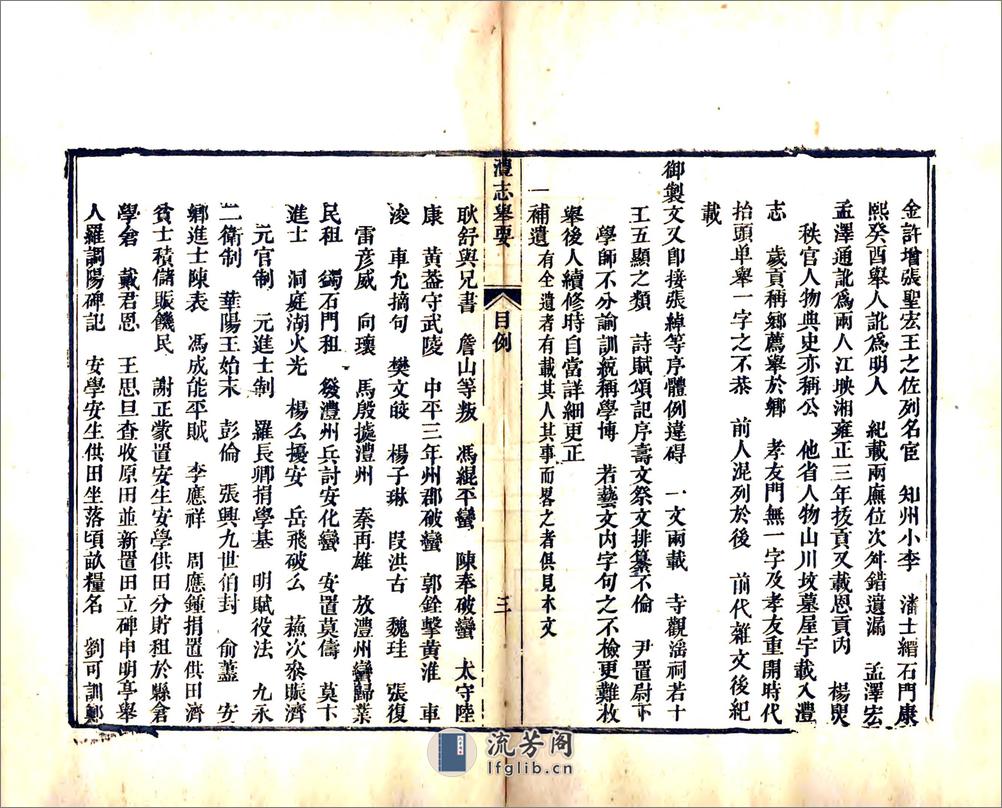 金許增張聖宏王之佐列名宦　知州小李　潘士縉石門康
熙癸酉舉人訛為明人　紀載兩廡位次舛錯遺漏　孟澤宏
孟澤通訛為兩人江映湘雍正三年拔貢又載恩貢內　楊㬰
秩官人物典史亦稱公　他省人物山川坟墓屋宇載入澧
志　歲貢稱鄉薦舉於鄉　孝友門無一字及孝友重開時代
抬頭单举一字之不恭　前人混列於後　前代雜文後紀
載
御製文又即接張綽等序體例違碍　一文兩載　寺觀滛祠若十
王五顯之類　詩賦頌記序壽文祭文排纂不倫　尹置尉下
學師不分諭訓統稱學博　若藝文内字句之不檢更難枚
舉後人續修時自當詳細更正
一補遺　有全遺者有載其人其事而畧之者俱見本文
澧志舉要　目例　三
耿舒與兄書　詹山等叛　馮緄平蠻　陳奉破蠻　太守陸
康　黃葢守武陵　中平三年州郡破蠻　郭銓擊黃淮　車
浚　車允摘句　樊文皎　楊子琳　段洪古　魏珪　張復
雷彥威　向瓌　馬殷據澧州　秦再雄　放澧州蠻歸業
民租　蠲石門租　發澧州兵討安化蠻　安置莫儔　莫卞
進士　洞庭湖火光　楊么擾安　岳飛破么　蕪次黎賑濟
元官制　元進士制　羅長卿捐學基　明賦役法　九永
二衛制　華陽王始末　彭倫　張興九世伯封　俞藎　安
鄉進士陳表　馮成能平賊　李應祥　周應鍾捐置供田濟
貧士積儲賑饑民　謝正蒙置安生安學供田分貯租於縣倉
學倉　戴君恩　王思旦查收原田並新置田立碑申明亭舉
人羅調陽碑記　安學安生供田坐落頃畝糧名　劉可訓鄭
流芳阁
lfglib.cn